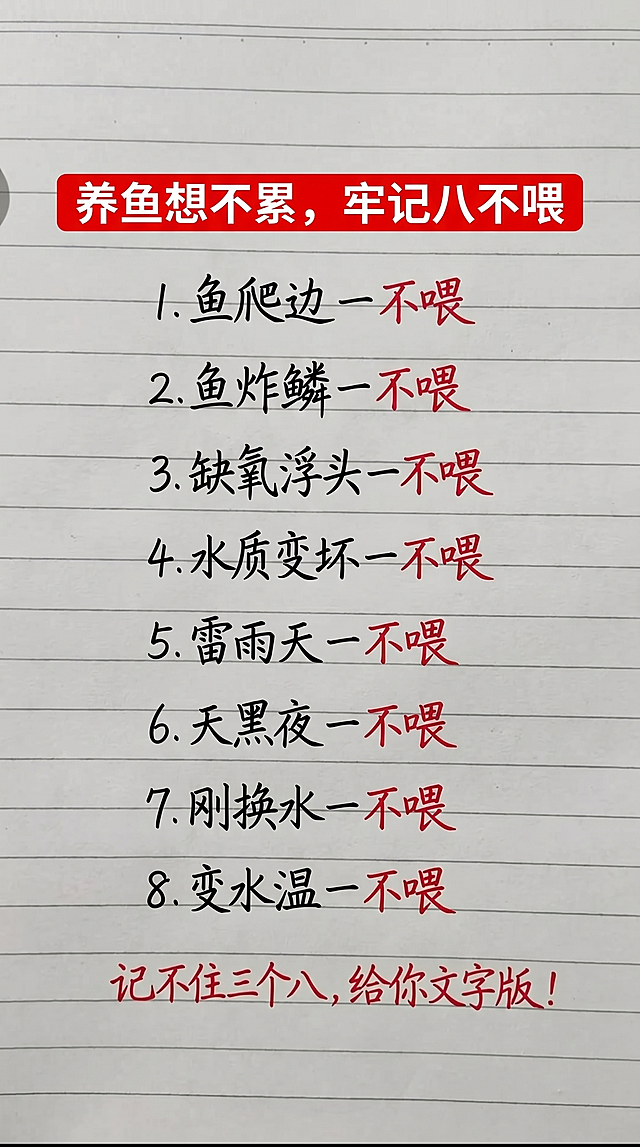 养鱼想不累，牢记八不喂
1.鱼爬边一不喂
2.鱼炸鳞一不喂
3.缺氧浮头一不喂
4.水质变坏一不喂
5.雷雨天一不喂
6.天黑夜一不喂
7.刚换水一不喂
8.变水温一不喂
记不住三个八,给你文字版!